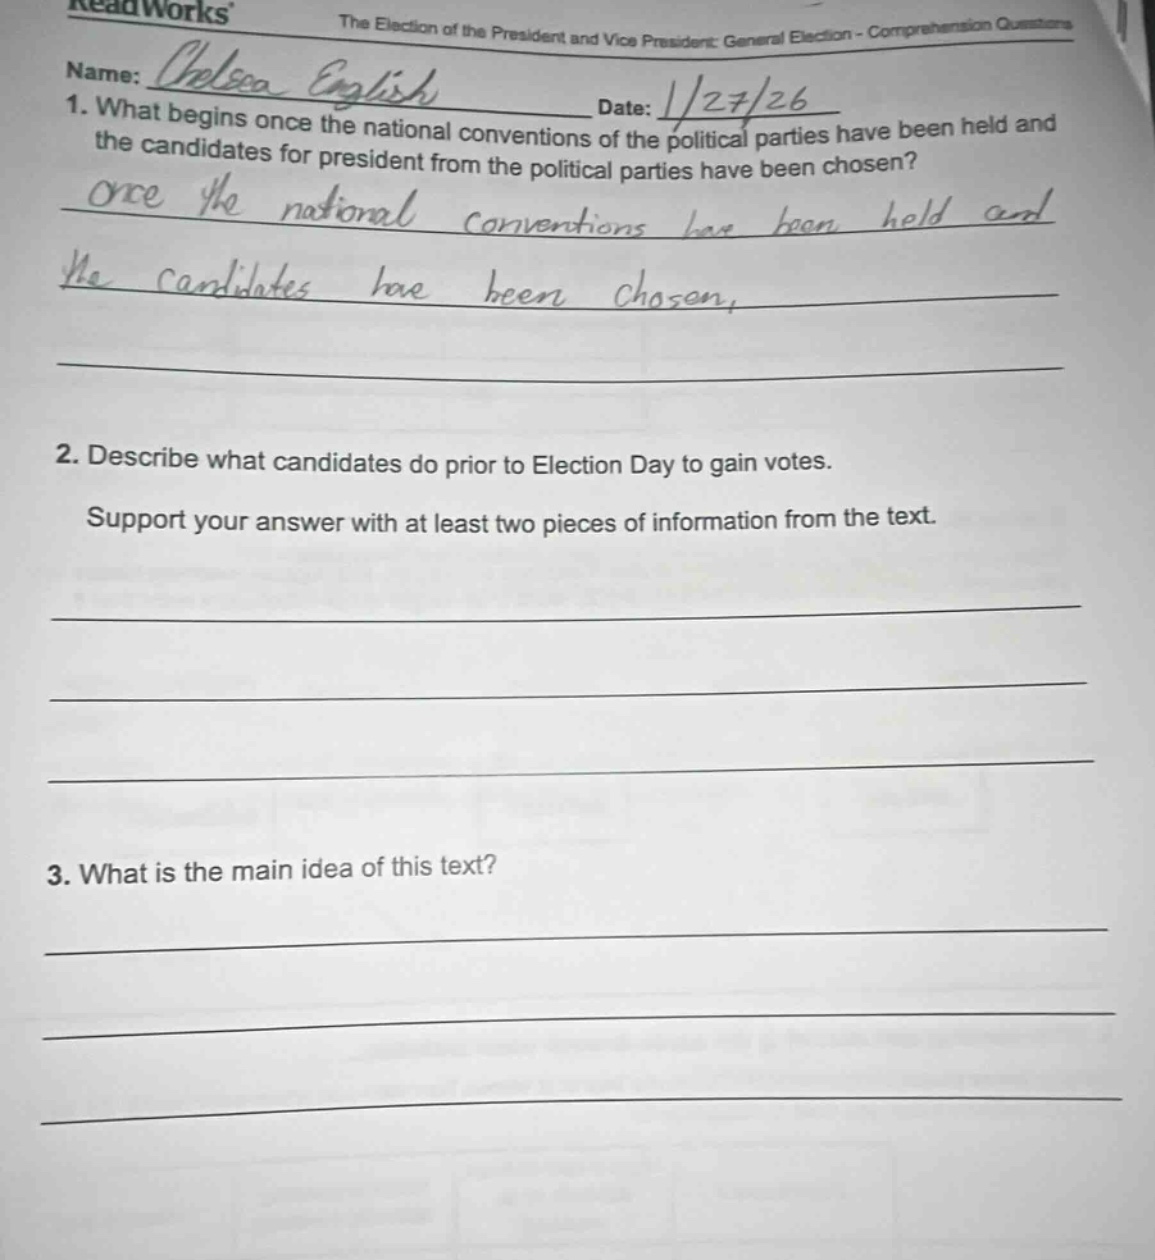 ReadWorks®
The Election of the President and Vice President: General Election - Comprehension Questions
Name: Chelsea English
Date: 1/27/26
1. What begins once the national conventions of the political parties have been held and
the candidates for president from the political parties have been chosen?
once the national conventions have been held and
the candidates have been chosen,
2. Describe what candidates do prior to Election Day to gain votes.
Support your answer with at least two pieces of information from the text.
3. What is the main idea of this text?